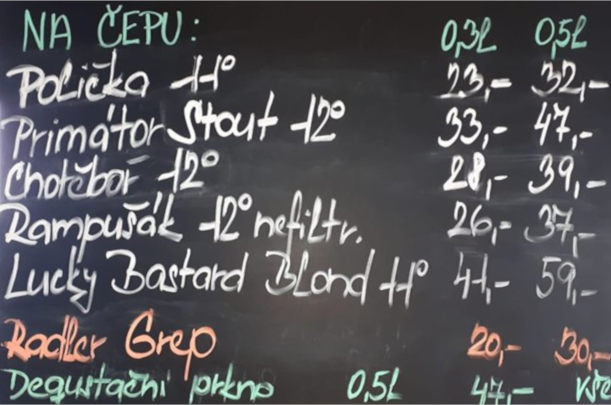 NA ČEPU: 0,3l 0,5l
Polička 11° 23,- 32,-
Primátor Stout 12° 33,- 47,-
Chotěboř 12° 28,- 39,-
Rampušák 12° nefiltr. 26,- 37,-
Lucky Bastard Blond 11° 41,- 59,-
Radler Grep 20,- 30,-
Degustační prkno 0,5l 47,-